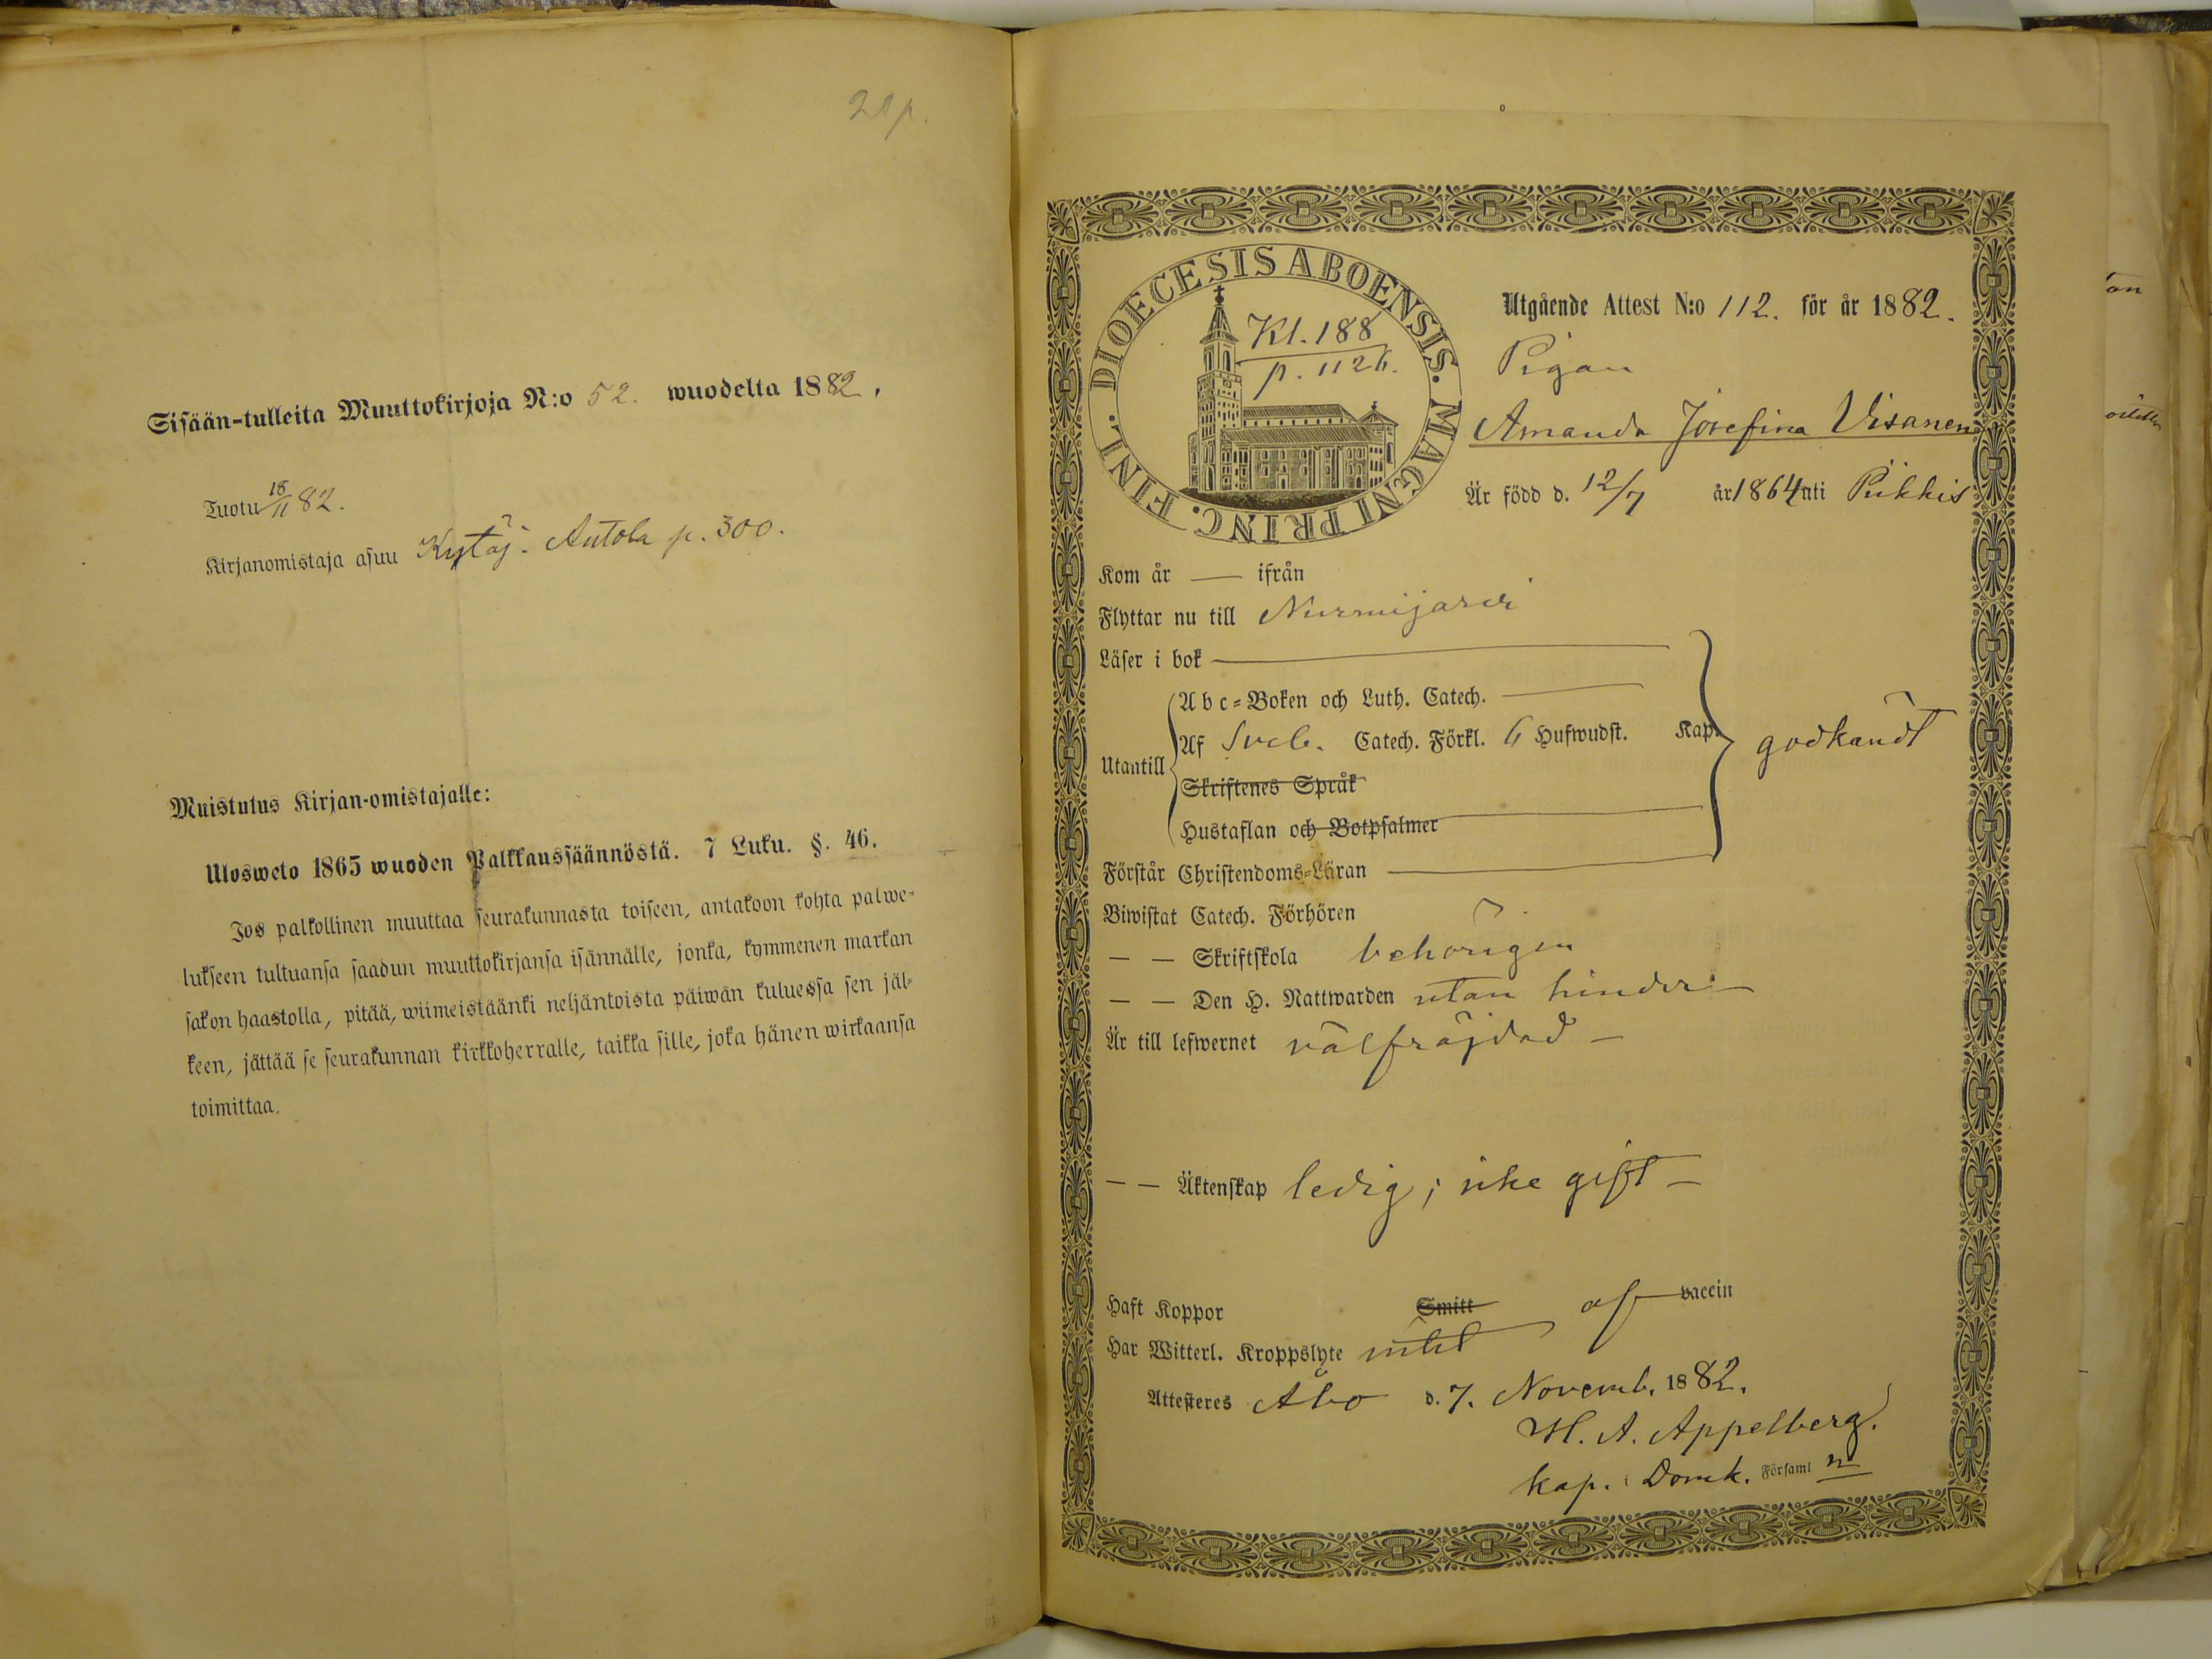 20 p.
Sisään-tulleita Muuttokirjoja N:o 52. wuodelta 1882.
Tuotu 18/11 82.
Kirjanomistaja asuu Kytäj. Autola p. 300.
Muistutus Kirjan-omistajalle:
Ulosweto 1865 wuoden Palkkaussäännöstä. 7 Luku. §. 46.
Jos palkollinen muuttaa seurakunnasta toiseen, antakoon kohta palwe-
lukseen tultuansa saadun muuttokirjansa isännälle, jonka, kymmenen markan
sakon haastolla, pitää, wiimeistäänki neljäntoista päiwän kuluessa sen jäl-
keen, jättää se seurakunnan kirkkoherralle, taikka sille, joka hänen wirkaansa
toimittaa.
DIOECESIS ABOENSIS. MAGNI PRINC. FINL.
Kl. 188
p. 1126.
Utgående Attest N:o 112. för år 1882.
Pigan
Amanda Josefina Visanen
Är född d. 12/7 år 1864 uti Piikkis
Kom år — ifrån
Flyttar nu till Nurmijärvi
Läser i bok
Utantill
Abc-Boken och Luth. Catech.
Af Sveb. Catech. Förkl. 6 Hufwudst. Kap.
godkändt
Skriftenes Språk
Hustaflan och Botpsalmer
Förstår Christendoms-Läran
Biwistat Catech. Förhören
— — Skriftskola behörigen
— — Den H. Nattwarden utan hinder —
Är till lefwernet välfräjdad —
— — Äktenskap ledig; icke gift —
Haft Koppor Smitt af vaccin
Har Witterl. Kroppslyte intet
Attesteres Åbo d. 7. Novemb. 1882.
H. A. Appelberg.
kap. i Domk. Församl n